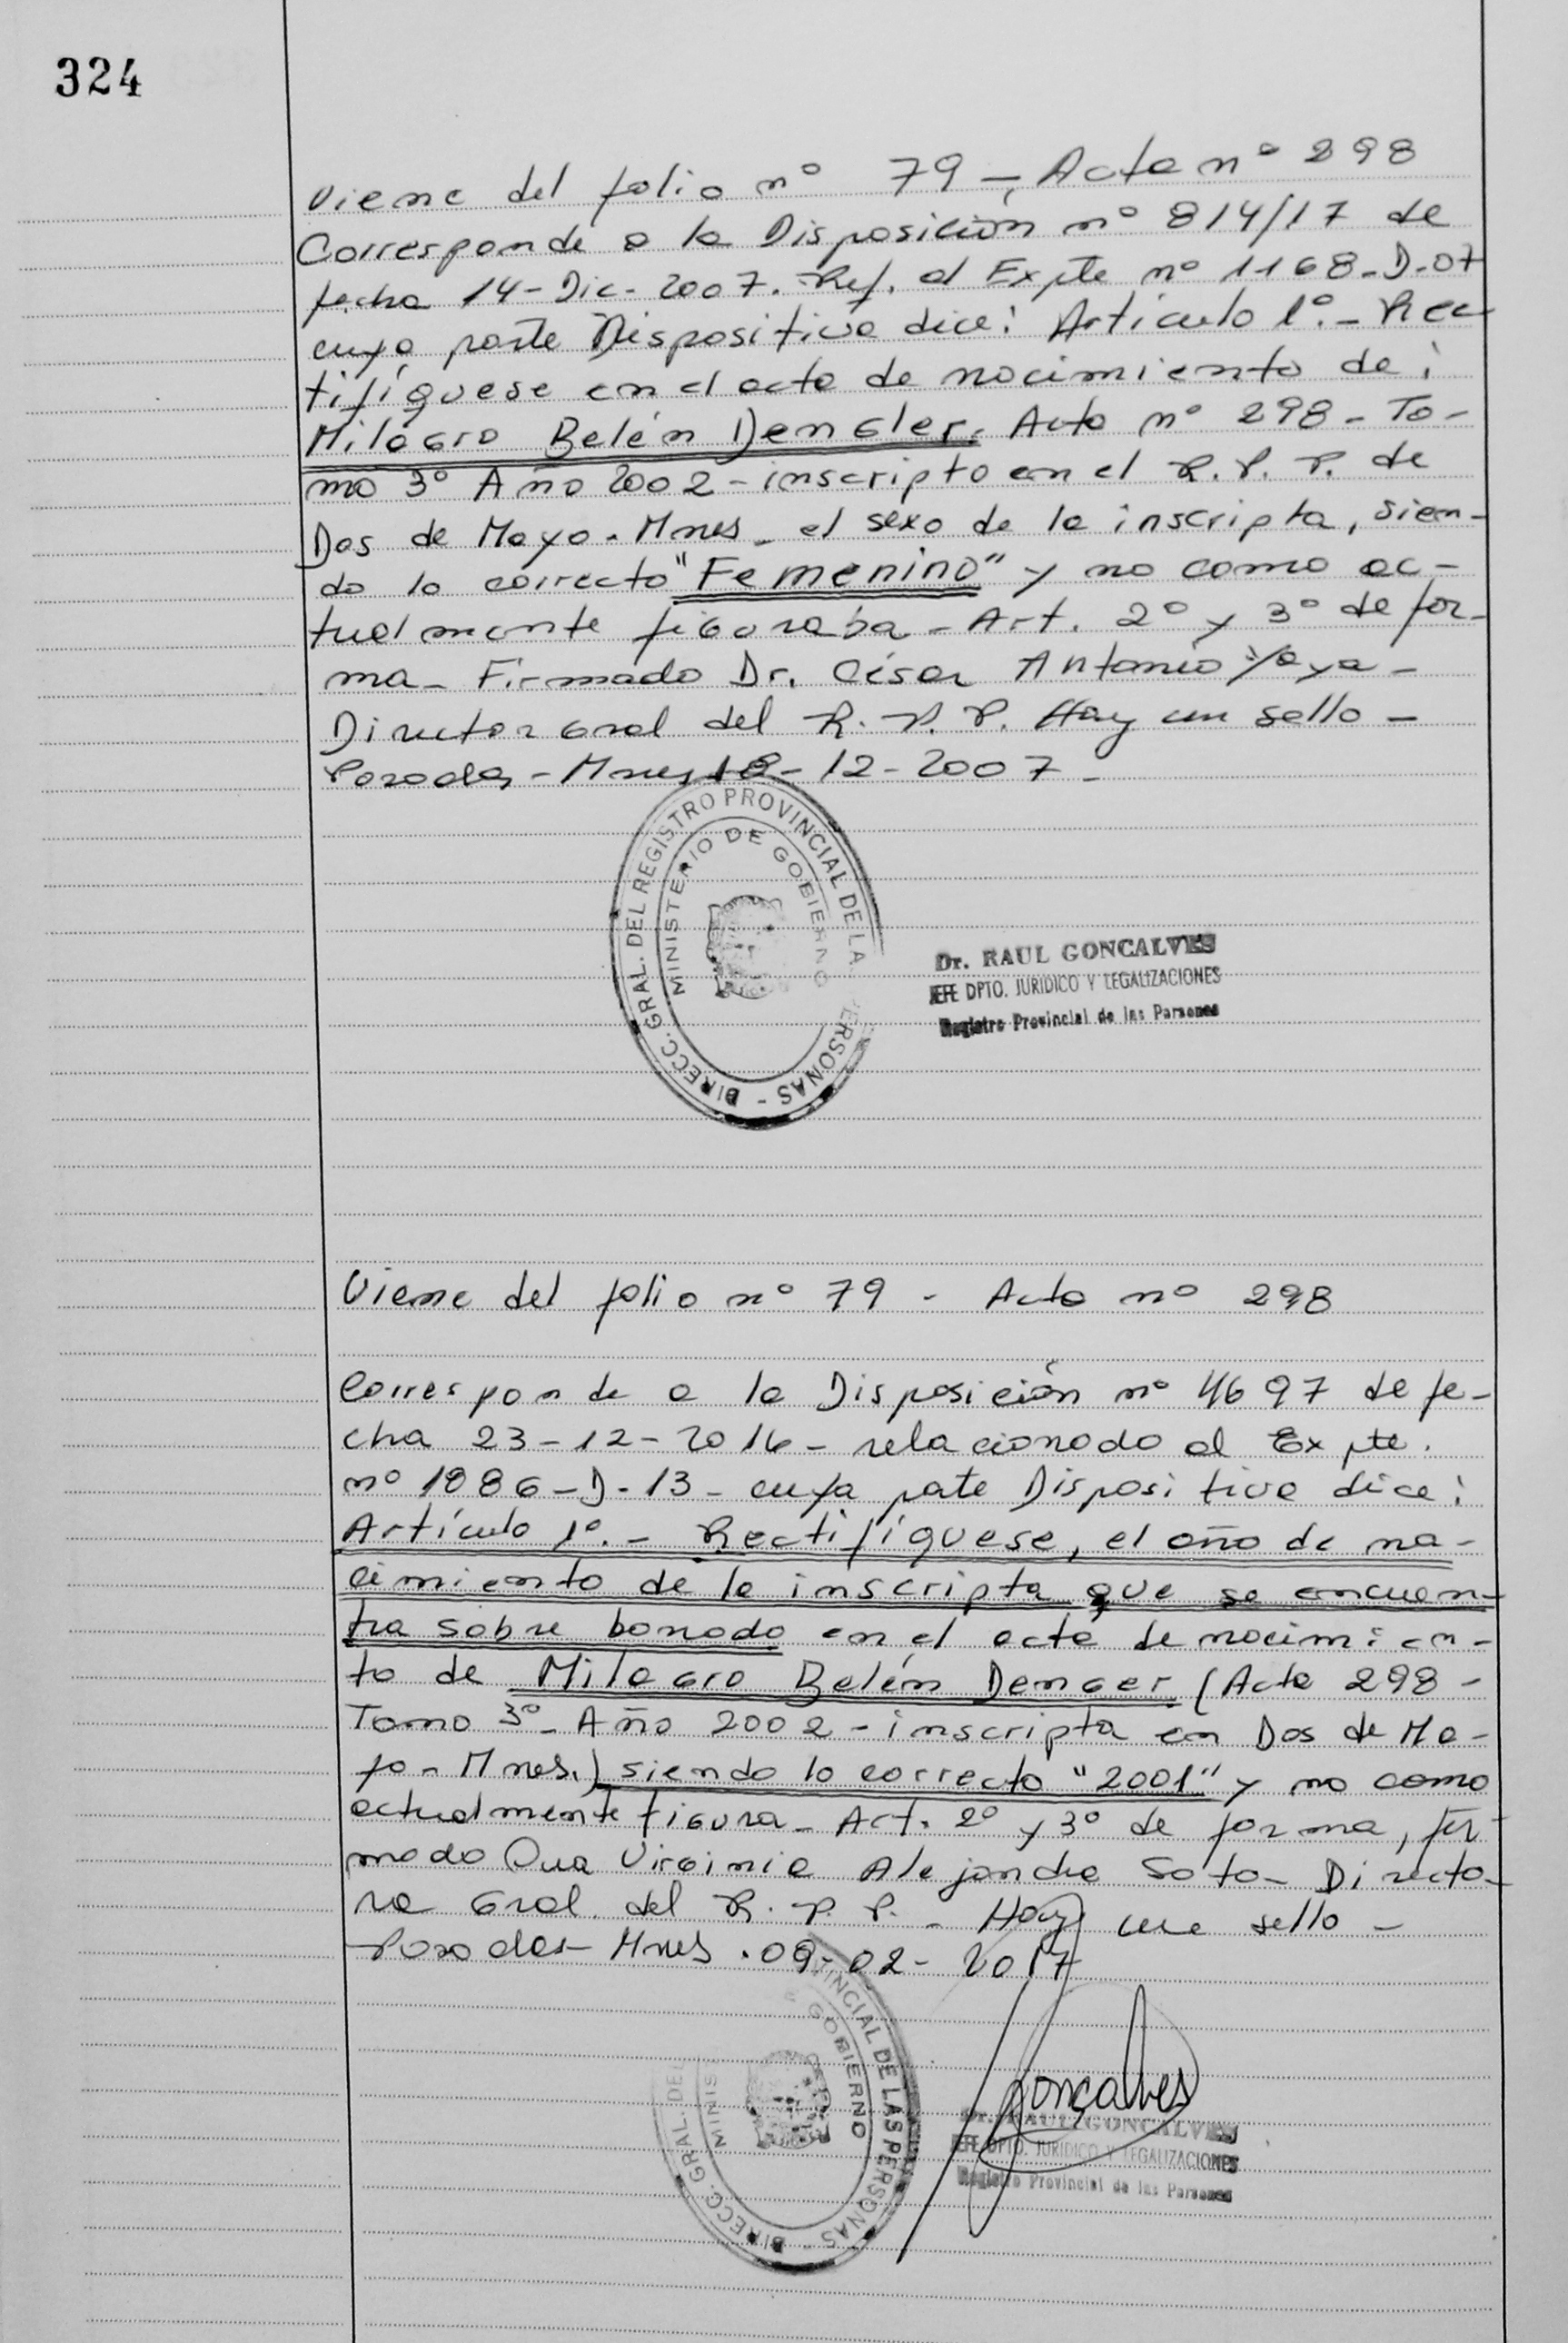 324
Viene del folio nº 79 - Acta nº 298
Corresponde a la Disposición nº 814/17 de
fecha 14-Dic-2007. Ref. al Expte nº 1168-D-07
cuya parte Dispositiva dice: Artículo 1º.- Rec-
tifíquese en el acta de nacimiento de:
Milagro Belén Dengler. Acta nº 298 - To-
mo 3º Año 2002 - inscripta en el R.P.P. de
Dos de Mayo. Mnes - el sexo de la inscripta, sien-
do lo correcto "Femenino" y no como ac-
tualmente figuraba - Art. 2º y 3º de for-
ma - Firmado Dr. César Antonio Yaya -
Director Gral del R.P.P. Hay un sello -
Posadas - Mnes 18-12-2007 -
DIRECC. GRAL. DEL REGISTRO PROVINCIAL DE LA ERSONAS -
MINISTERIO DE GOBIERNO
Dr. RAUL GONCALVES
JEFE DPTO. JURIDICO Y LEGALIZACIONES
Registro Provincial de las Personas
Viene del folio nº 79 - Acta nº 298
Corresponde a la Disposición nº 4697 de fe-
cha 23-12-2016 - relacionado al Expte.
nº 1886-D-13 - cuya pate Dispositiva dice:
Artículo 1º.- Rectifíquese, el año de na-
cimiento de la inscripta que se encuen-
tra sobre borrado en el acta de nacimien-
to de Milagro Belén Denger (Acta 298 -
Tomo 3º - Año 2002 - inscripta en Dos de Ma-
yo - Mnes.) siendo lo correcto "2001" y no como
actualmente figura - Art. 2º y 3º de forma, fir-
mado Dra Virginia Alejandra Soto - Directo-
ra Gral. del R.P.P. - Hay un sello -
Posadas - Mnes. 09-02-2017
DIRECC. GRAL. DEL VINCIAL DE LAS PERSONAS -
MINIS GOBIERNO
Goncalves
Dr. RAUL GONCALVES
JEFE DPTO. JURIDICO Y LEGALIZACIONES
Registro Provincial de las Personas